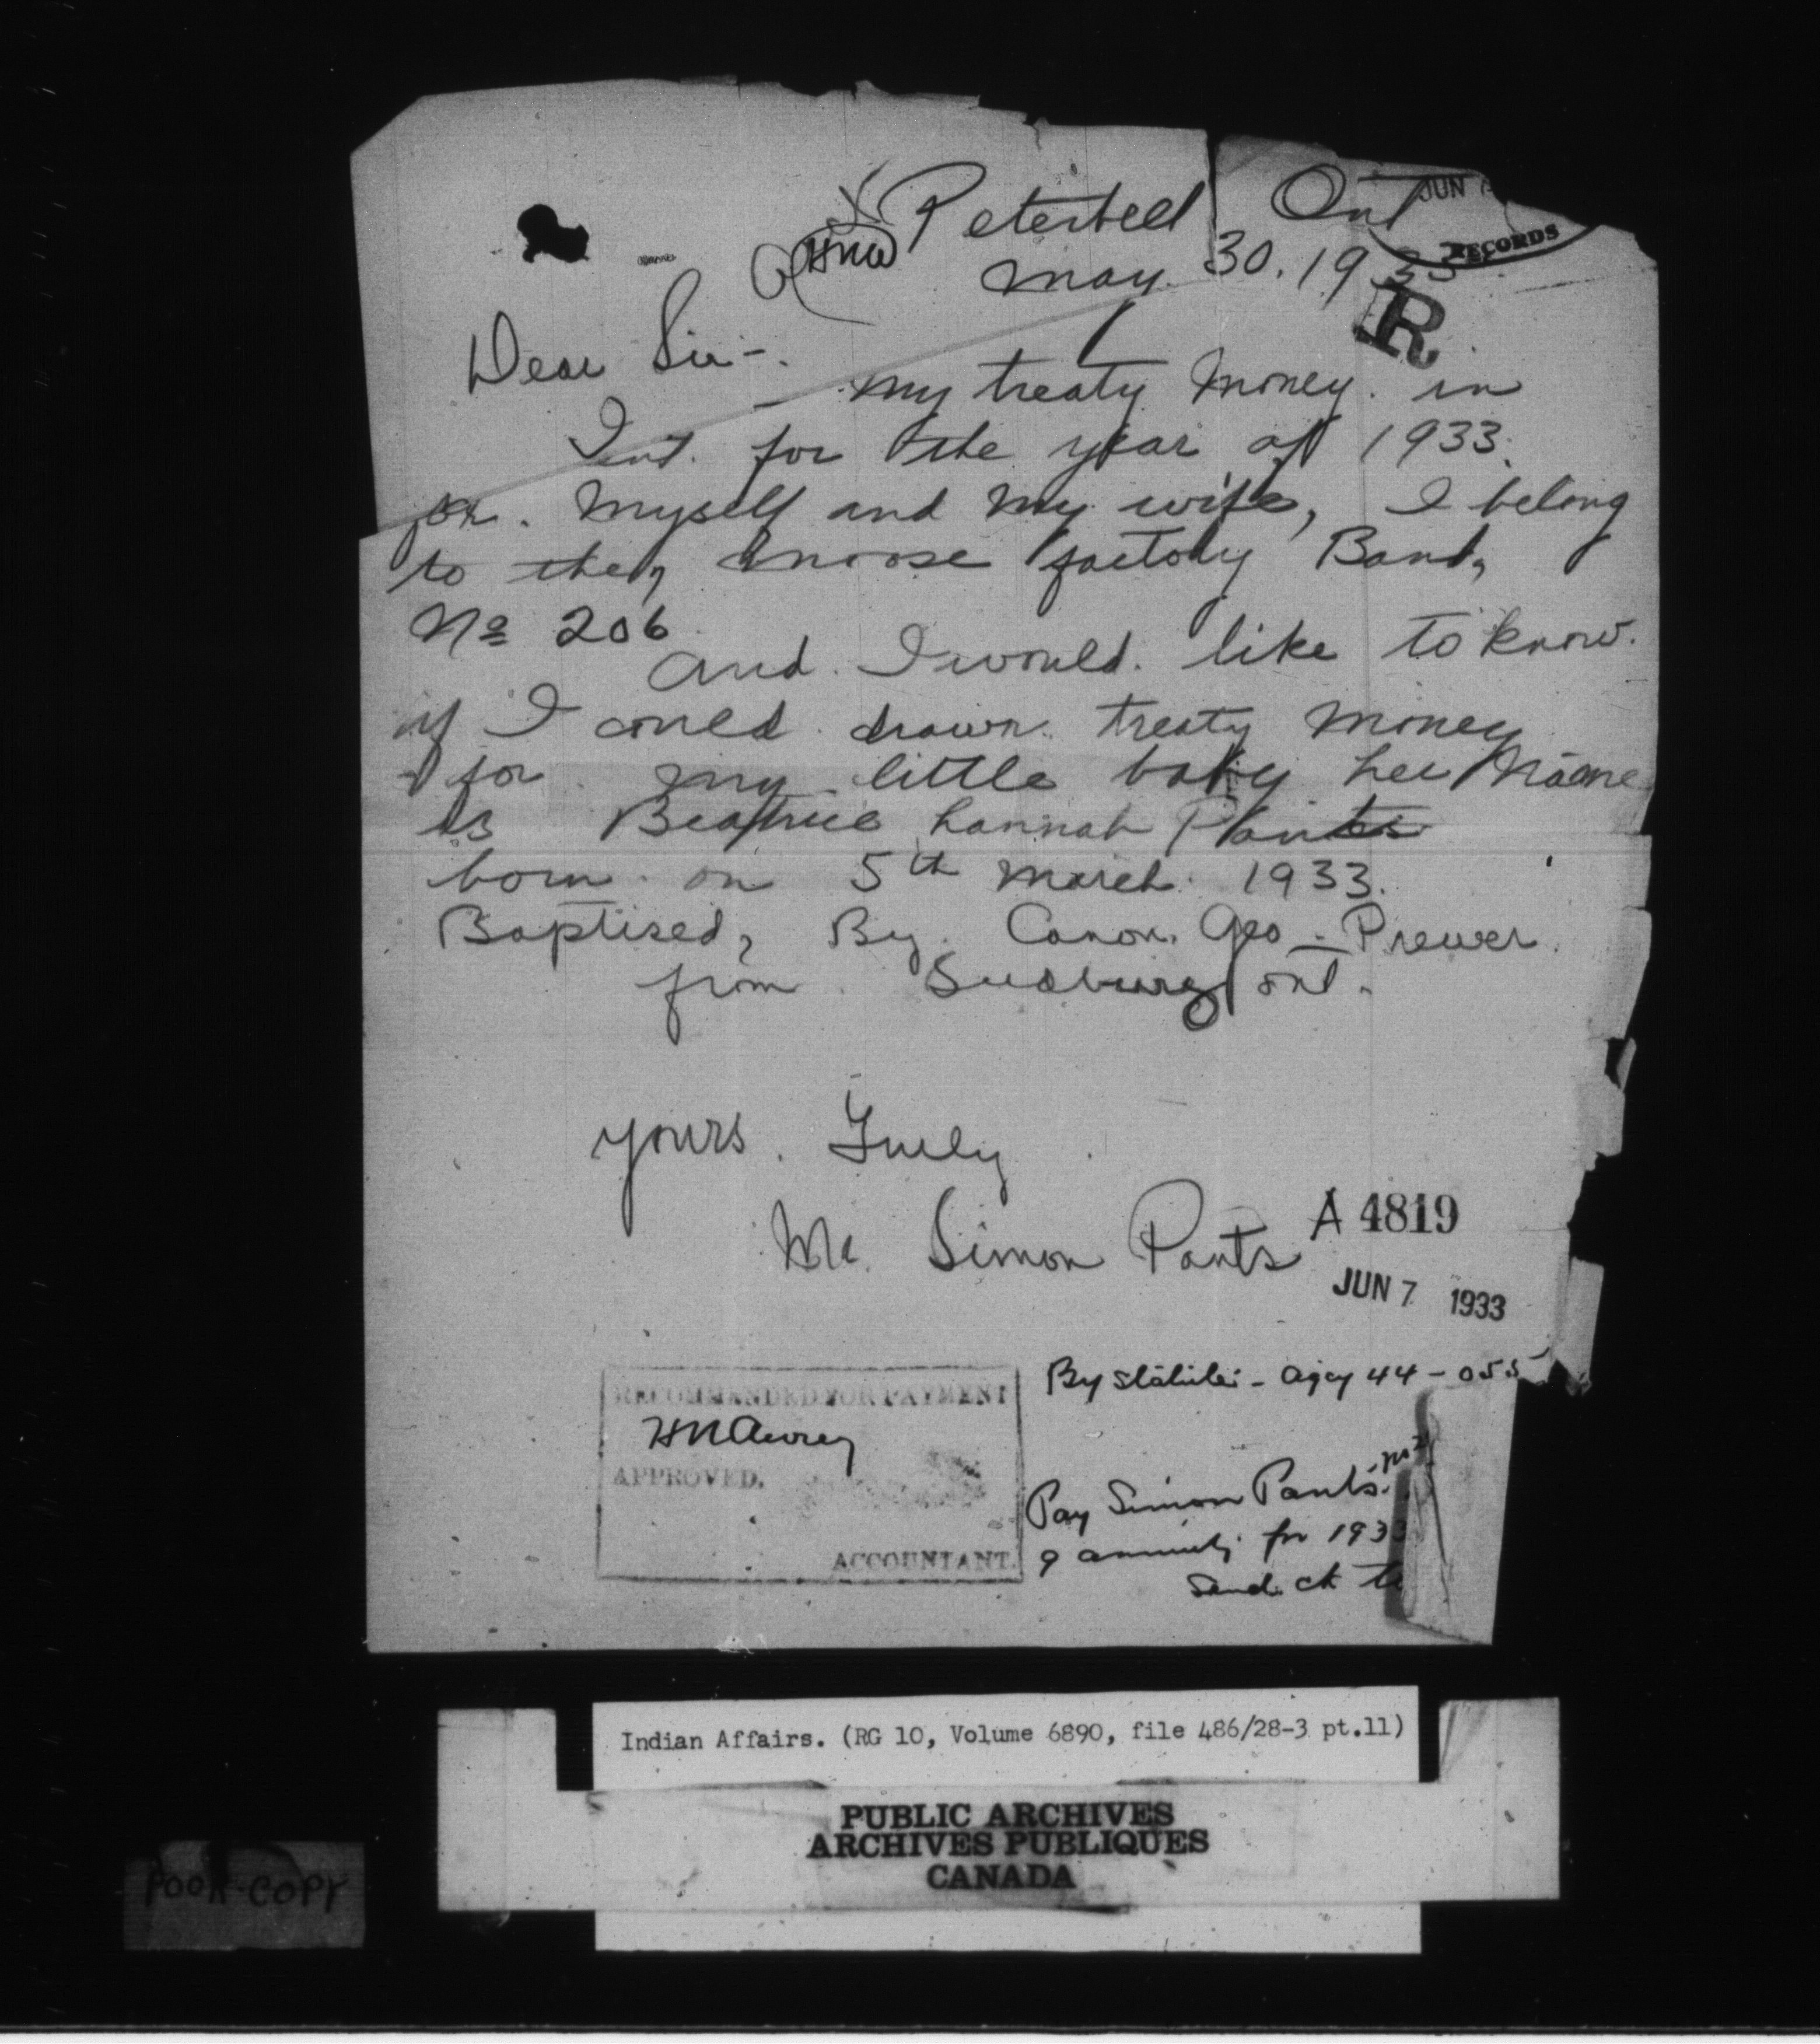 Peterbell Ont
JUN
RECORDS
HMW
May. 30. 1933
R
Dear Sir -.
my treaty money. in
for the year of 1933.
for. Myself and My wife, I belong
to the, moose factory Band,
No 206
and. I would. like to know.
if I could. drawn. treaty money
for my little baby her Name
is Beatrice hannah Pants
born on 5th March. 1933.
Baptised, By. Canon. Geo - Prewer.
from Sudbury ont.
yours. Truly
Mr. Simon Pants
A 4819
JUN 7 1933
RECOMMENDED FOR PAYMENT
APPROVED.
ACCOUNTANT.
By Statute - agcy 44 - 055
Pay Simon Pants
annuity for 1933
Send ck to
Indian Affairs. (RG 10, Volume 6890, file 486/28-3 pt.11)
PUBLIC ARCHIVES
ARCHIVES PUBLIQUES
CANADA
POOR COPY